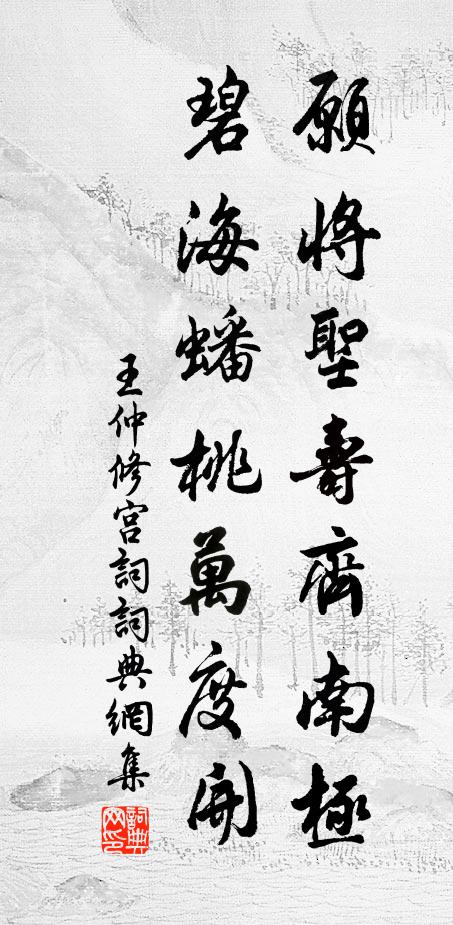 願將聖壽齊南極
碧海蟠桃萬度開
王仲修宮詞詞典網集
詞典網印